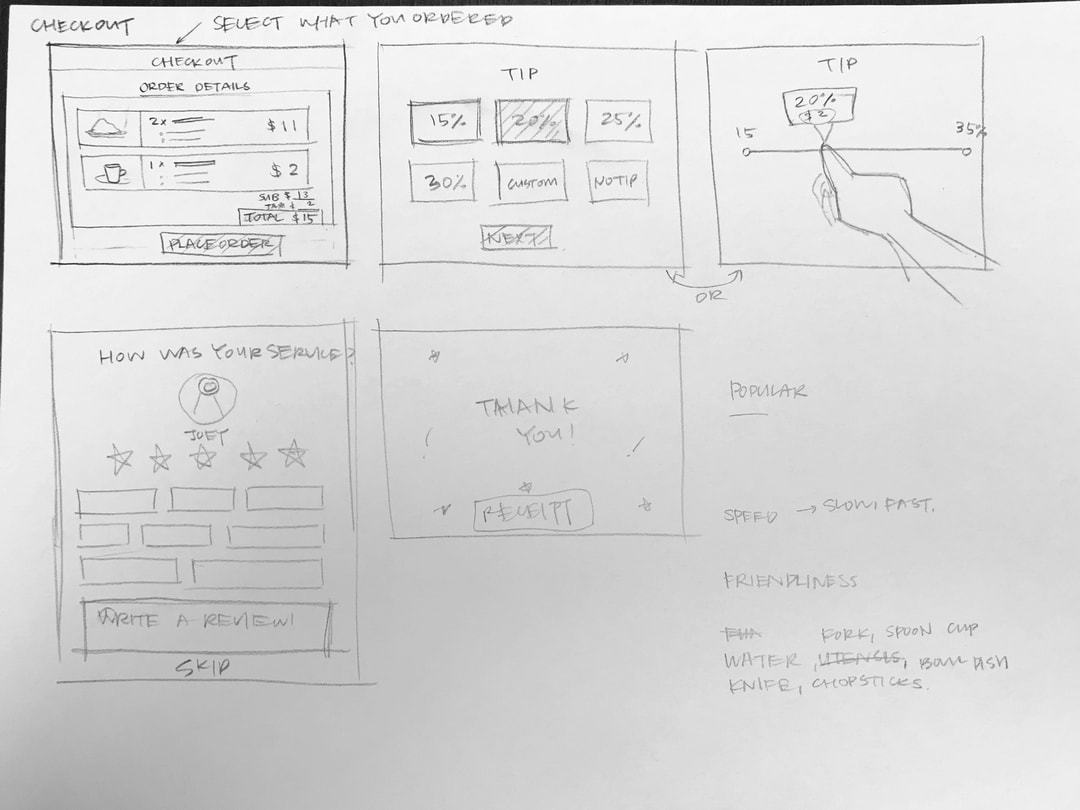 CHECKOUT
SELECT WHAT YOU ORDERED
CHECKOUT
ORDER DETAILS
2x
$11
1x
$2
SUB $ 13
TAX $ 2
TOTAL $15
PLACE ORDER
TIP
15% 20% 25%
30% CUSTOM NO TIP
NEXT
TIP
20%
$2
15
35%
OR
HOW WAS YOUR SERVICE?
JOEY
WRITE A REVIEW!
SKIP
THANK
YOU!
RECEIPT
POPULAR
SPEED → SLOW, FAST.
FRIENDLINESS
FORK, SPOON CUP
WATER, UTENSILS, BOWL DISH
KNIFE, CHOPSTICKS.